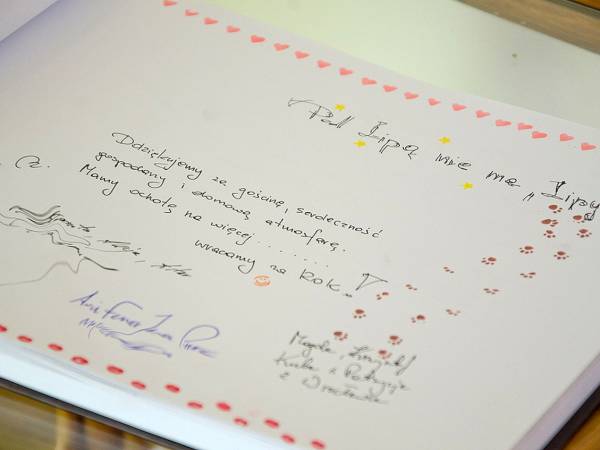 Pod Lipą nie ma „Lipy
Dziękujemy za gościnę, serdeczność
gospodarzy i domową atmosferę.
Mamy ochotę na więcej........
wracamy za Rok..
Magda, Krzysztof
Kuba i Patrycja
z Wrocławia